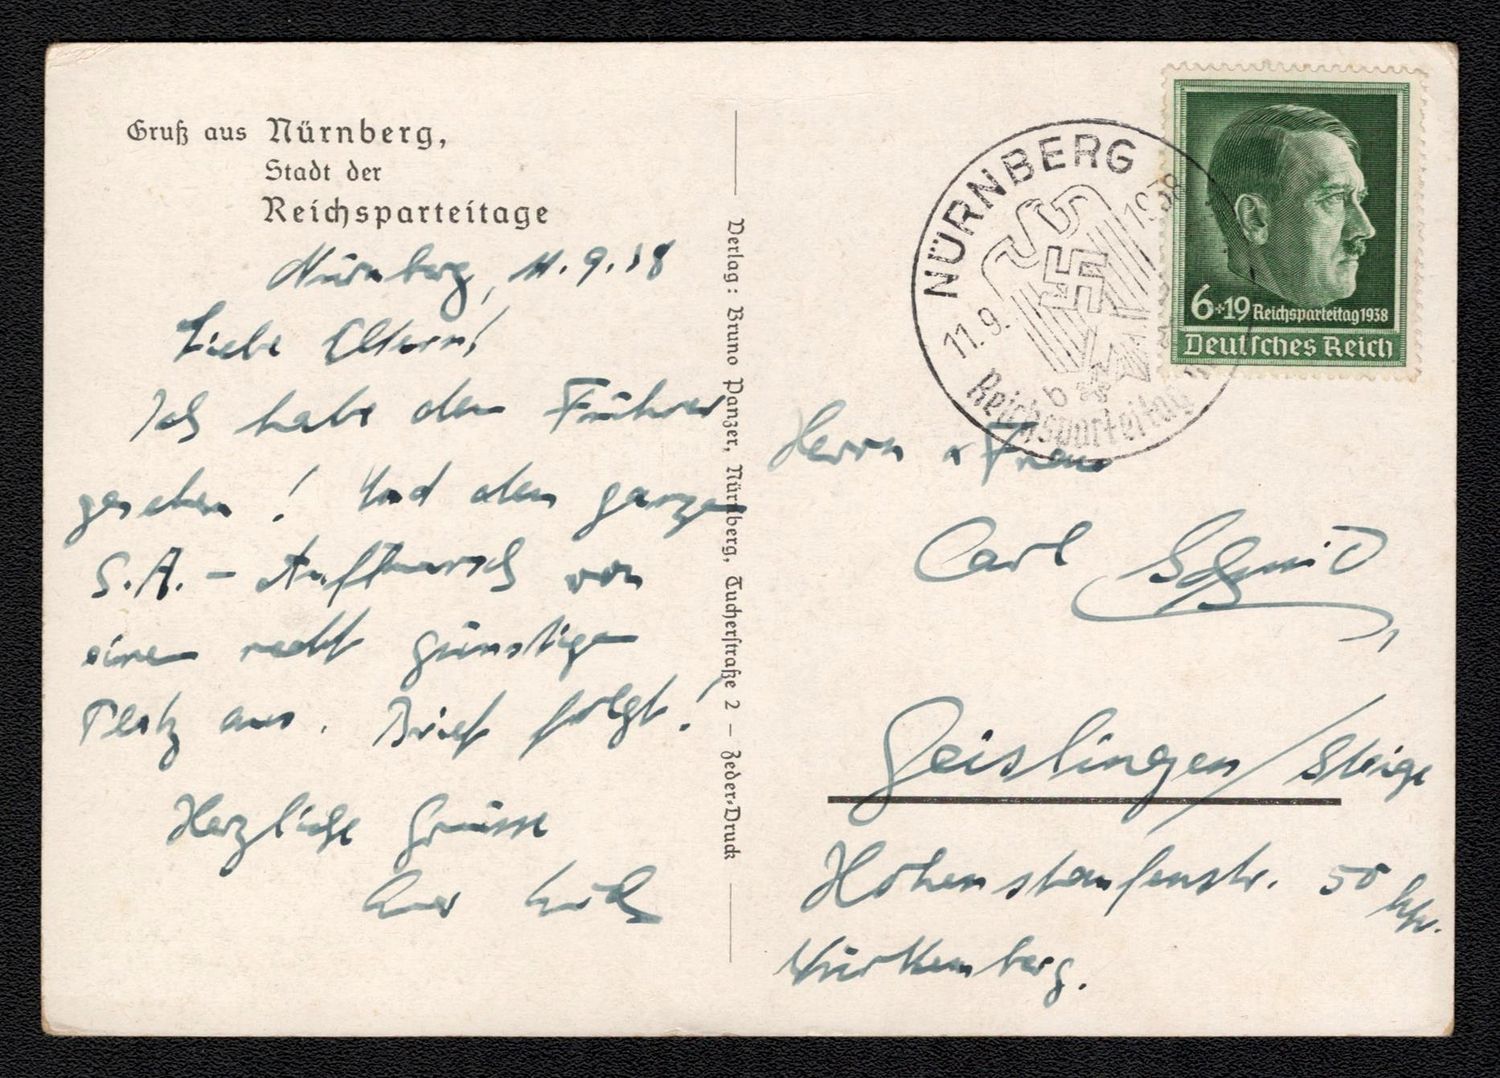 Gruß aus Nürnberg,
Stadt der
Reichsparteitage
Nürnberg, 11.9.38
Liebe Eltern!
Ich habe den Führer
gesehen! Und den ganzen
S.A.-Aufmarsch von
einem recht günstigen
Platz aus. Brief folgt!
Herzliche Grüsse
Euer
Verlag: Bruno Panzer, Nürnberg, Tucherstraße 2 – Zeder-Druck
NÜRNBERG
11.9. 1938
b
Reichsparteitag
6+19 Reichsparteitag 1938
Deutsches Reich
Herrn u Frau
Carl Schmid
Geislingen/Steige
Hohenstaufenstr. 50
Württemberg.